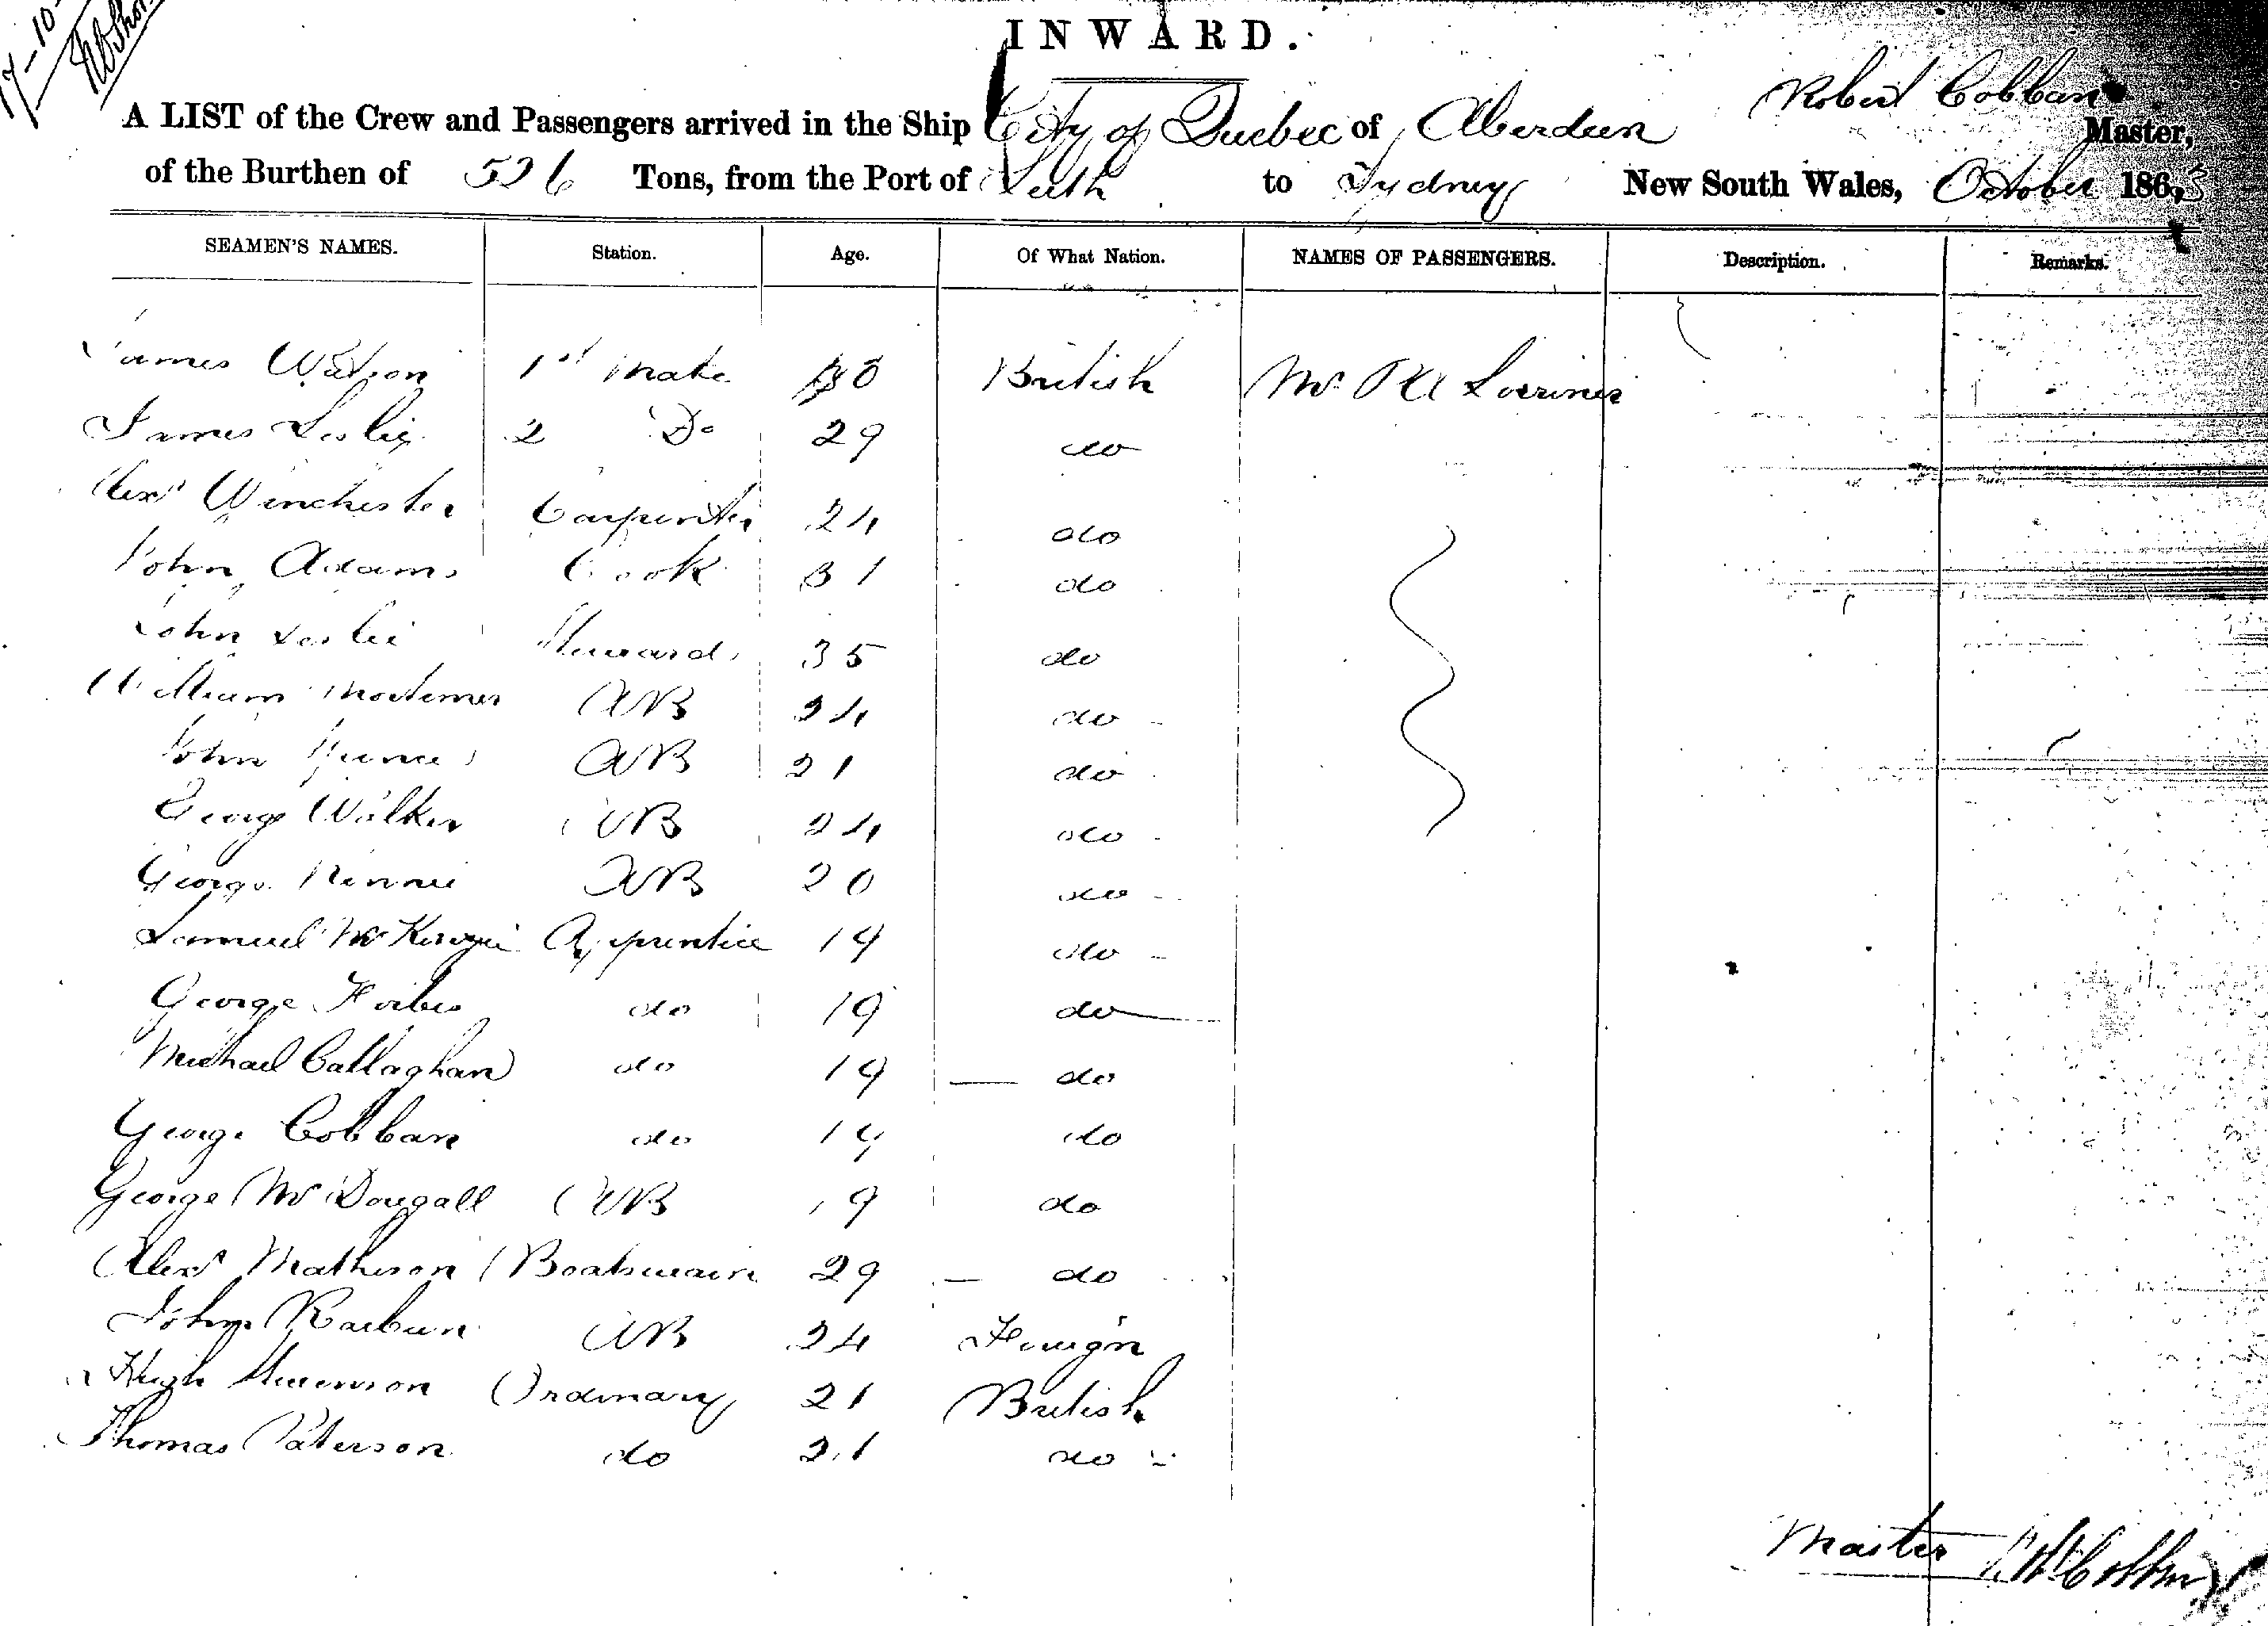 17-10-
INWARD.
Robert Cobban
A LIST of the Crew and Passengers arrived in the Ship City of Quebec of Aberdeen Master,
of the Burthen of 526 Tons, from the Port of Leith to Sydney New South Wales, October 1863
SEAMEN'S NAMES. Station. Age. Of What Nation. NAMES OF PASSENGERS. Description. Remarks.
James Watson 1st Mate 30 British Mr Lorimer
James Leslie 2 Do 29 do
Alexr Winchester Carpenter 24 do
John Adams Cook 31 do
John Leslie Steward 35 do
William Mortimer AB 24 do
John AB 21 do
George Walker AB 24 do
George Rennie AB 20 do
Samuel McKenzie Apprentice 19 do
George Forbes do 19 do
Michael Callaghan do 19 do
George Cobban do 14 do
George McDougall AB 19 do
Alexr Matheson Boatswain 29 do
John AB 24 Foreign
Hugh Stevenson Ordinary 21 British
Thomas Paterson do 21 do
Master Rt Cobban